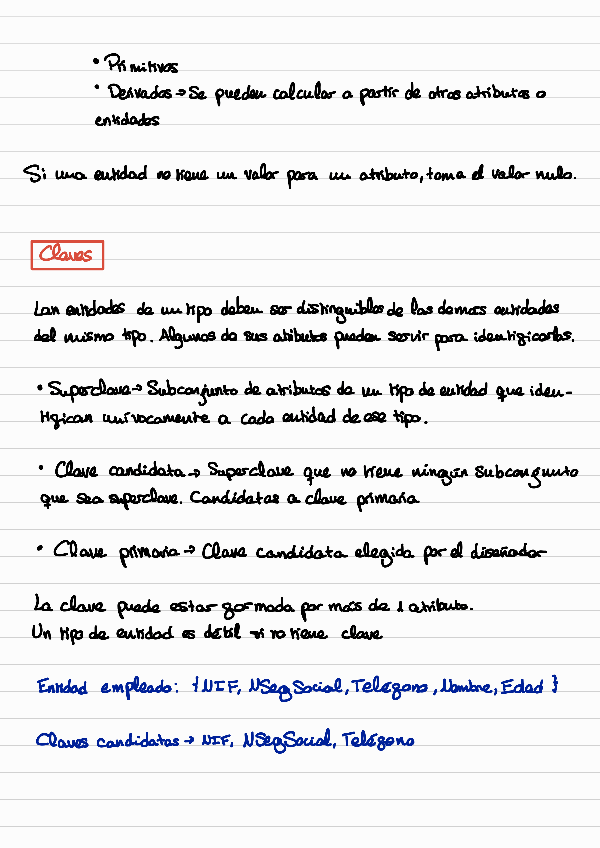 • Primitivos
• Derivados → Se pueden calcular a partir de otros atributos o
entidades
Si una entidad no tiene un valor para un atributo, toma el valor nulo.
Claves
Lan entidades de un tipo deben ser distinguibles de las demas entidades
del mismo tipo. Algunos de sus atibutos pueden servir para identificarlas.
• Superclave → Subconjunto de atributos de un tipo de entidad que iden-
tifican unívocamente a cada entidad de ese tipo.
• Clave candidata → Superclave que no tiene ningún subconjunto
que sea superclave. Candidatas a clave primaria
• Clave primaria → Clave candidata elegida por el diseñador
La clave puede estar formada por más de 1 atributo.
Un tipo de entidad es débil si no tiene clave
Entidad empleado: {NIF, NSegSocial, Teléfono, Nombre, Edad}
Claves candidatas → NIF, NSegSocial, Teléfono